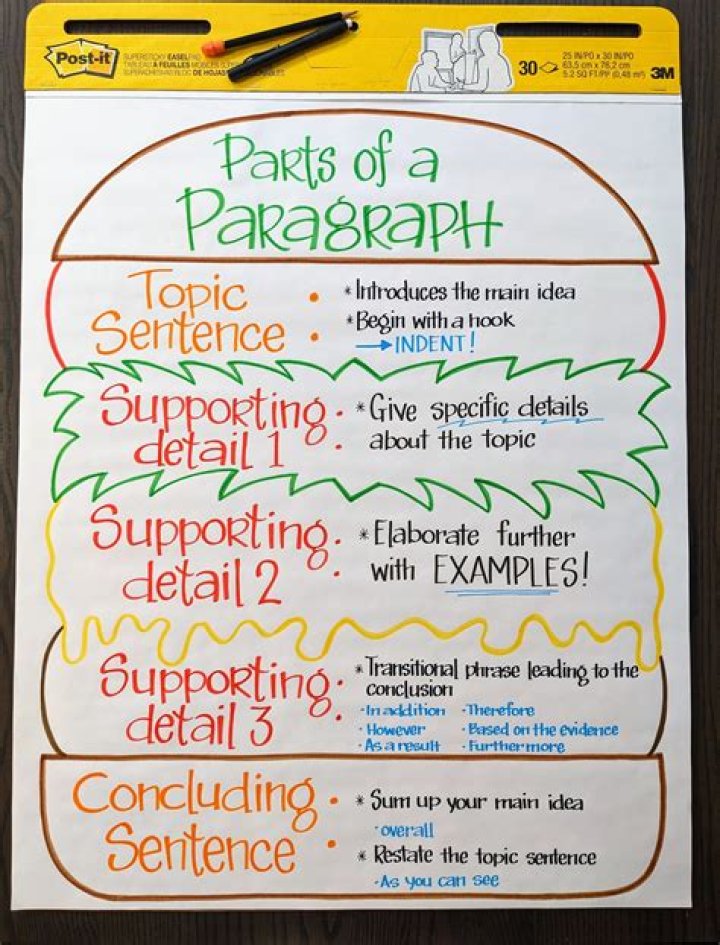 Post-it
SUPERSTICKY EASEL
TABLEAU À FEUILLES MOBILES
SUPERADHESAS BLOC DE HOJAS
30
25 IN/PO x 30 IN/PO
63.5 cm x 76.2 cm
5.2 SQ FT/PI² (0,48 m²)
3M
Parts of a
Paragraph
Topic
Sentence :
*Introduces the main idea
*Begin with a hook
→INDENT!
Supporting
detail 1 :
*Give specific details
about the topic
Supporting
detail 2 :
*Elaborate further
with EXAMPLES!
Supporting
detail 3 :
*Transitional phrase leading to the
conclusion
·In addition ·Therefore
·However ·Based on the evidence
·As a result ·Furthermore
Concluding
Sentence :
* Sum up your main idea
·overall
* Restate the topic sentence
·As you can see